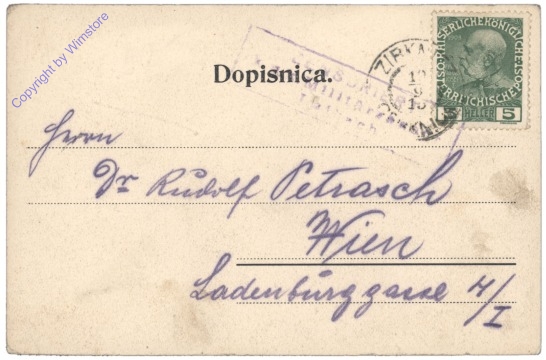 Copyright by Wimstore
KAISERLICHE KÖNIGLICHE
ÖSTERREICHISCHE
5 HELLER 5
ZIRKNITZ
Dopisnica.
Herrn
Dr Rudolf Petrasch
Wien
Ladenburggasse